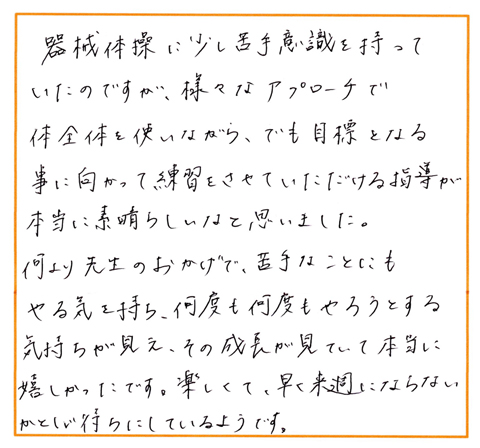 器械体操に少し苦手意識を持って
いたのですが、様々なアプローチで
体全体を使いながら、でも目標となる
事に向かって練習をさせていただける指導が
本当に素晴らしいなと思いました。
何より先生のおかげで、苦手なことにも
やる気を持ち、何度も何度もやろうとする
気持ちが見え、その成長が見ていて本当に
嬉しかったです。楽しくて、早く来週にならない
かと心待ちにしているようです。